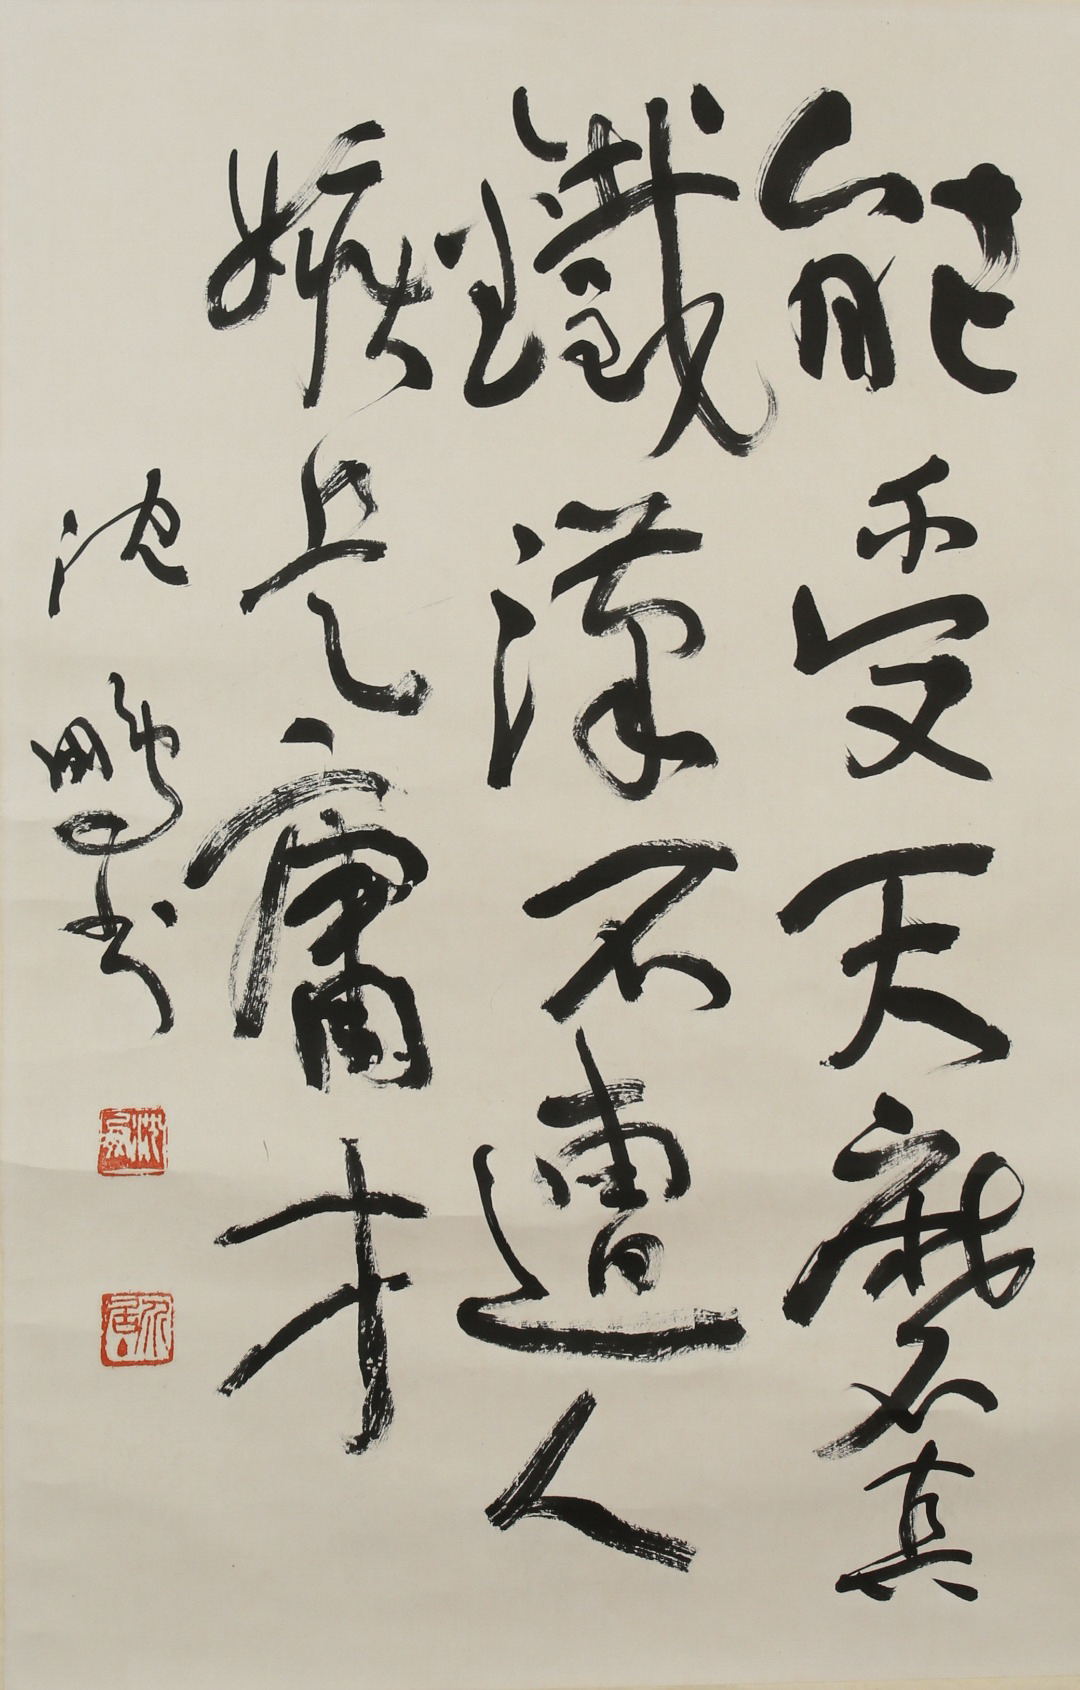 能受天磨真
鐵漢不遭人
嫉是庸才
沈鵬書
沈鵬
介居